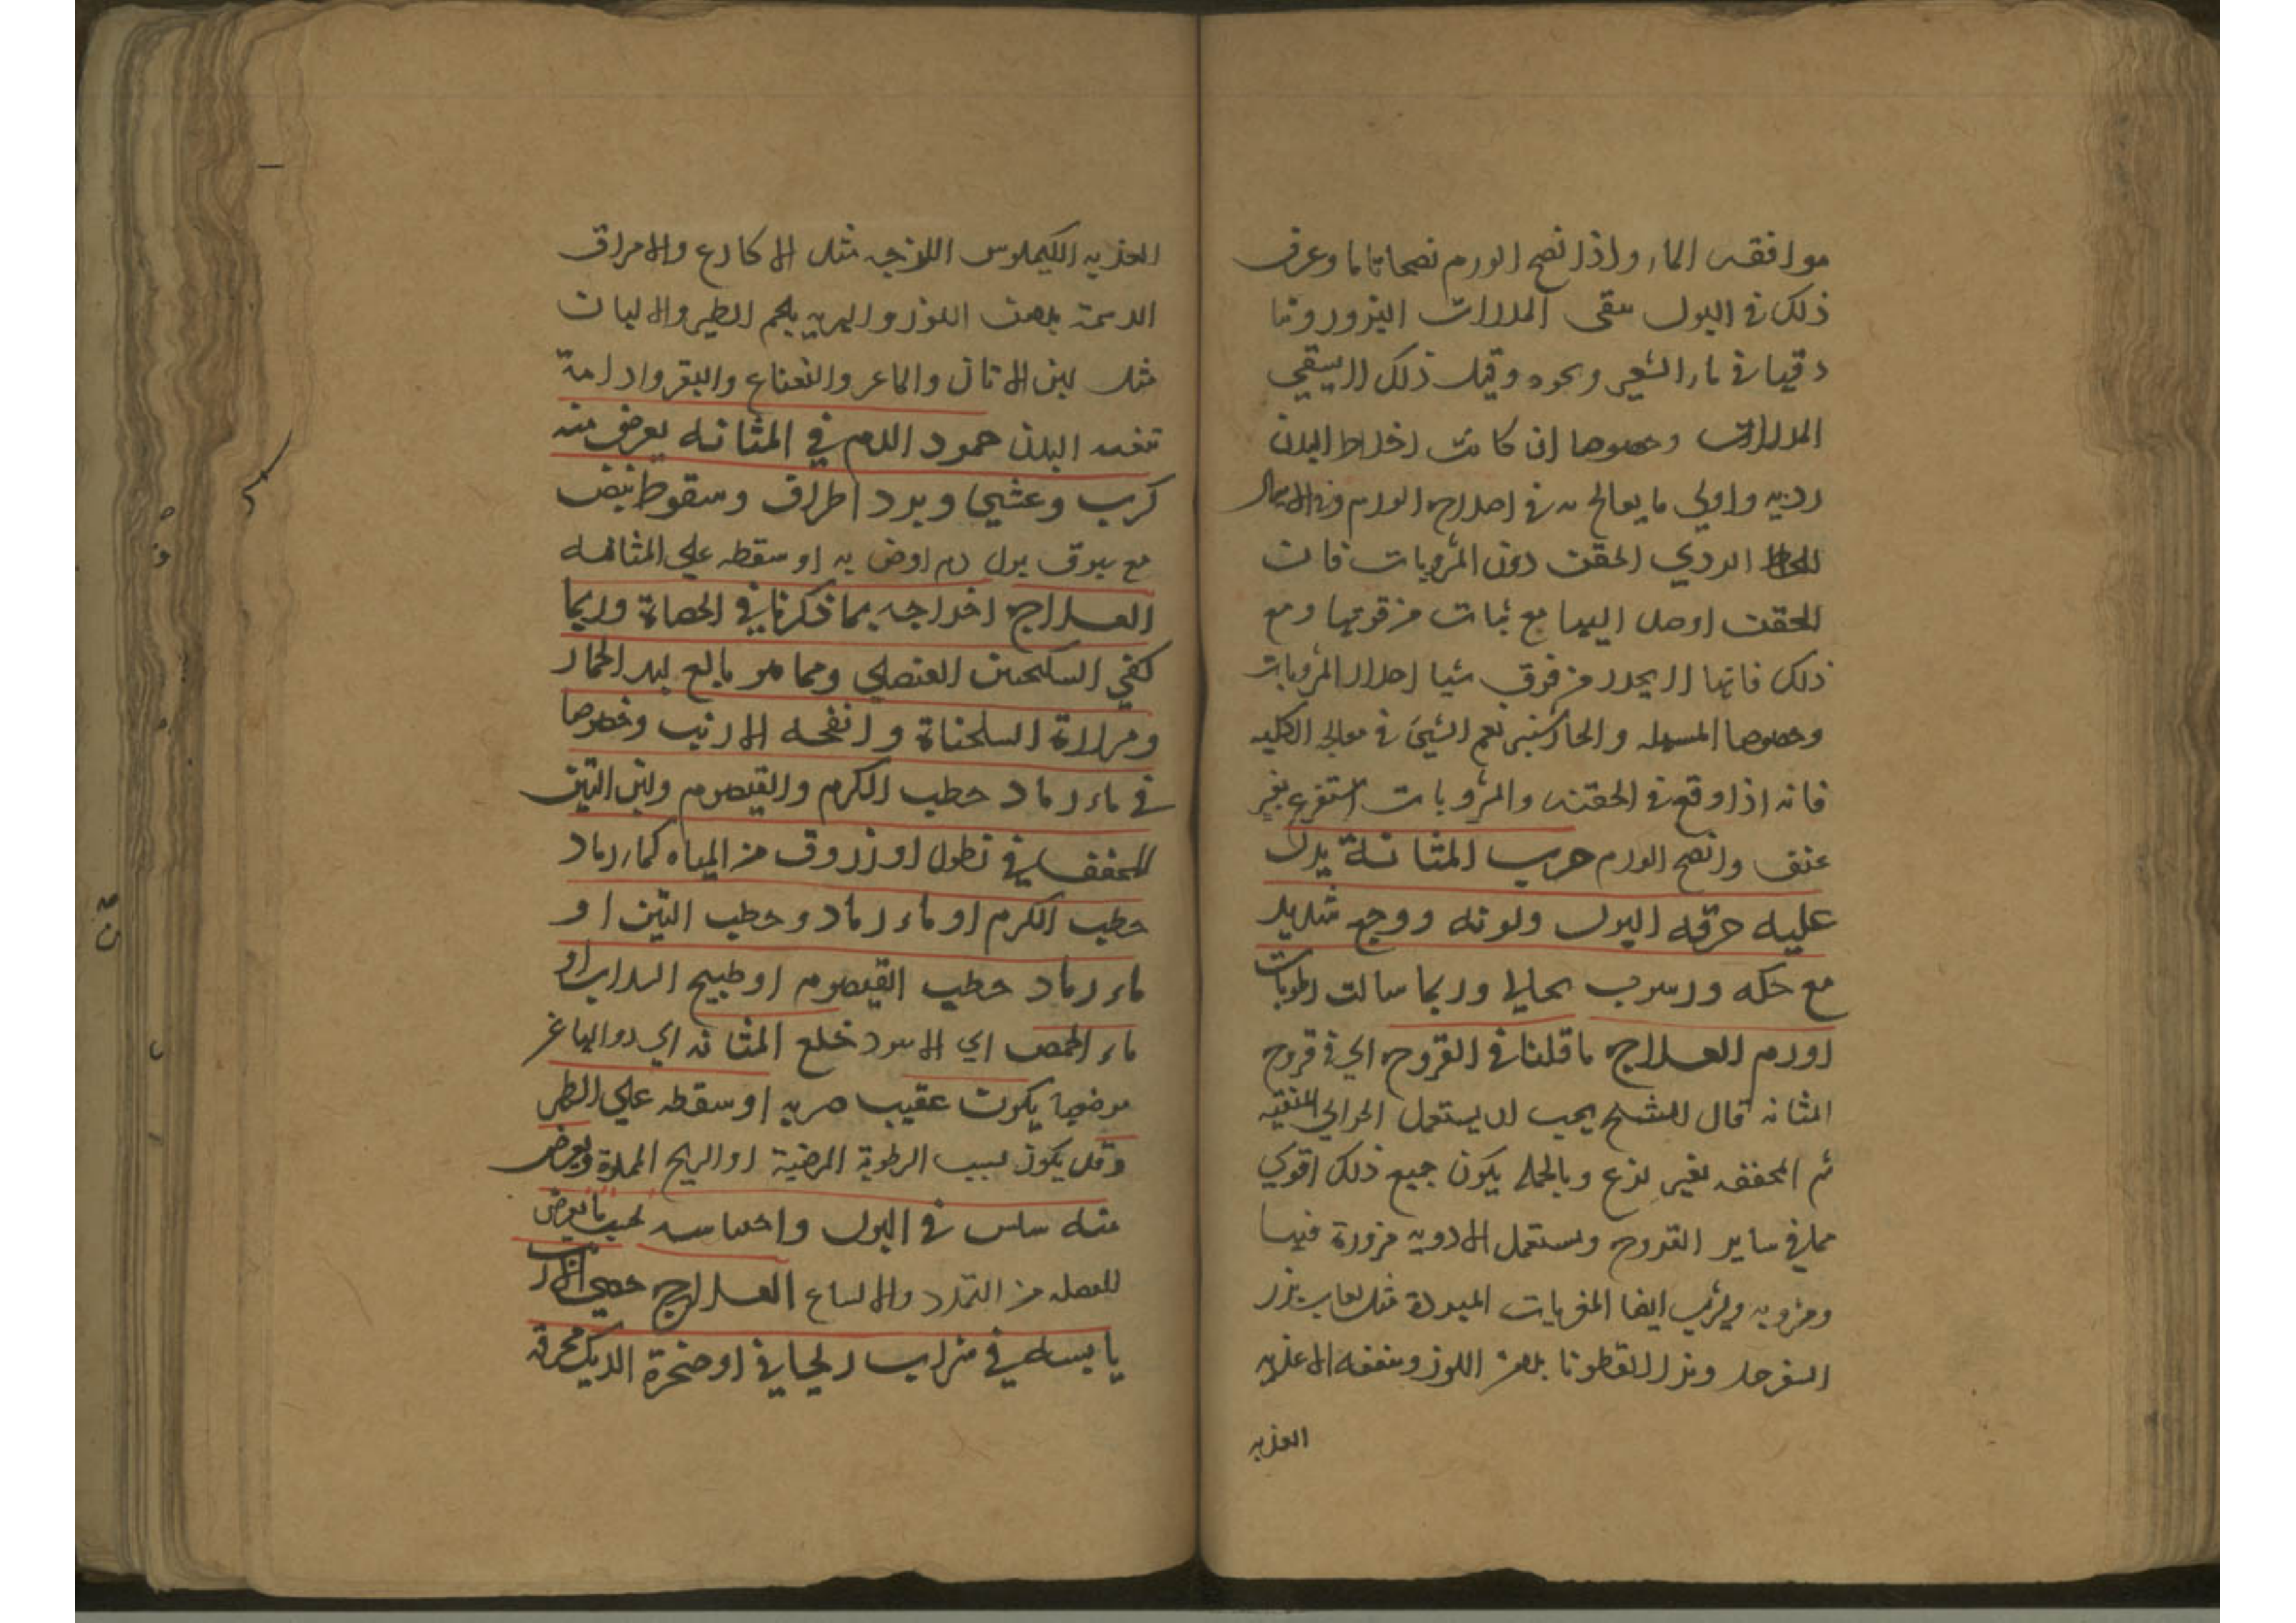 موافقه الماء واذا نضج الورم نضجا تاما وعرف
ذلك في البول سقى المدرات البزور ونا
دقيا في ماء الشعير ونحوه وقبل ذلك لا يسقي
المدرات وخصوصا ان كانت اخلاط البدن
رديه واولي ما يعالج به في اصلاح الورم وفي الاسهال
الخلط الردي الحقن دون المشروبات فان
الحقن اوصل اليها مع ثبات من قوتها ومع
ذلك فانها لا يحدر من فوق شيا احدار المشروبات
وخصوصا المسهله والخيارشنبر نعم الشيء في معالجه الكليه
فانه اذا وقع في الحقنه والمشروبات استفرغ بغير
عنف وانضج الورم جرب المثانة يدل
عليه حرقه البول ولونه ووجع شديد
مع حكه ورسوب نخالي وربما سالت رطوبات
اودم العلاج ما قلنا في القروح اي في قروح
المثانه قال الشيخ يجب ان يستعمل الجوالي المنقيه
ثم المجففه بغير لذع وبالجمله يكون جميع ذلك اقوي
مما في ساير القروح ويستعمل الادويه مزورة فيها
ومشروبه ويشرب ايضا المغريات المبردة مثل لعاب بزر
السفرجل وبزر القطونا بدهن اللوز وينفعه الاغذيه
العذبه
العذبه الكيموس اللزجه مثل الاكارع والامراق
الدسمة بدهن اللوز والهريسه بلحم الطير والالبان
مثل لبن الاتان والماعز والنعناع والبقر وادامة
تنقيه البدن جمود الدم في المثانه يعرض منه
كرب وغشي وبرد اطراف وسقوط نبض
مع سبوق بول دم اوضربه او سقطه علي المثانه
العلاج اخراجه بما ذكرنا في الحصاة وربما
كفي السكنجبين العنصلي ومما هو بالغ كبد الحمار
ومرارة السلحفاة وانفحه الارنب وخصوصا
في ماء رماد حطب الكرم والقيصوم ولبن التين
المجفف في نطول او زروق من المياه كماء رماد
حطب الكرم او ماء رماد وحطب التين او
ماء رماد حطب القيصوم او طبيخ السداب او
ماء الحمص اي الاسود خلع المثانه اي زوالها عن
موضعها يكون عقيب ضربه او سقطه علي الظهر
وقد يكون لسبب الرطوبة المرخية او الريح الممددة ويعرض
منه سلس في البول واحتباسه بحسب ما يعرض
للعضله من التمدد والاتساع العلاج خصي الارنب
يابسه في شراب ريحاني او حنجرة الديك محرقه